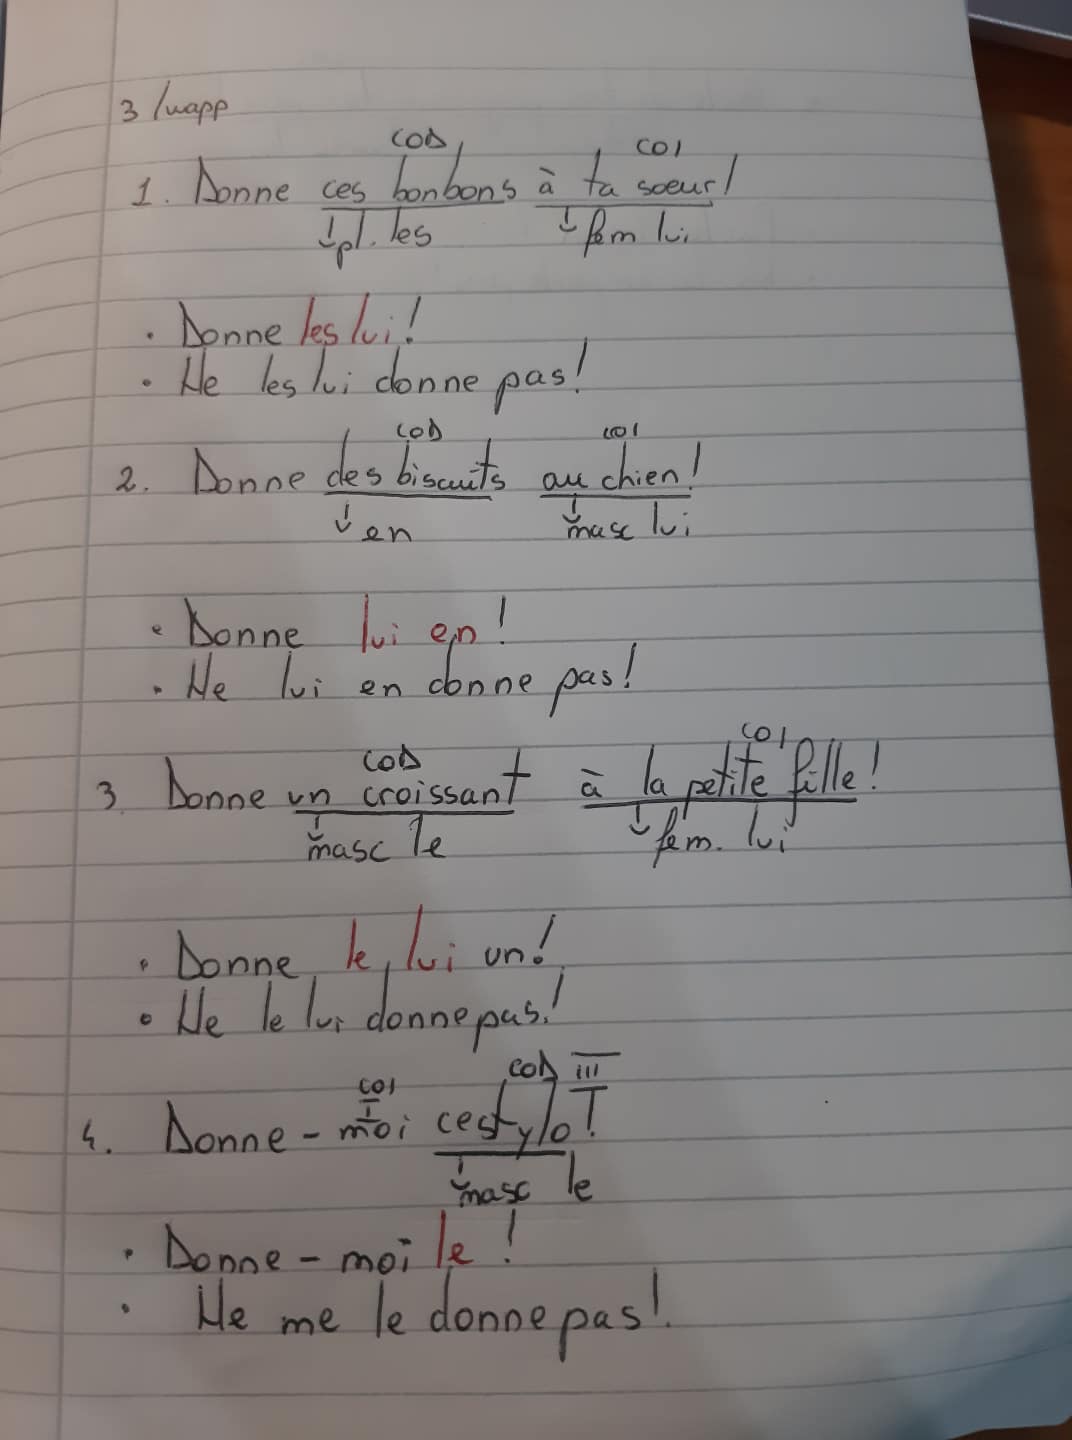 3 /wapp
COD COI
1. Donne ces bonbons à ta soeur!
↓pl. les ↓ fem lui
• Donne les lui!
• Ne les lui donne pas!
COD COI
2. Donne des biscuits au chien!
↓ en ↓ masc lui
• Donne lui en!
• Ne lui en donne pas!
COD COI
3 Donne un croissant à la petite fille!
↓ masc le ↓ fem. lui
• Donne le lui un!
• Ne le lui donne pas!
COI COD III
4. Donne-moi ce stylo!
↓ masc le
• Donne-moi le!
• Ne me le donne pas!